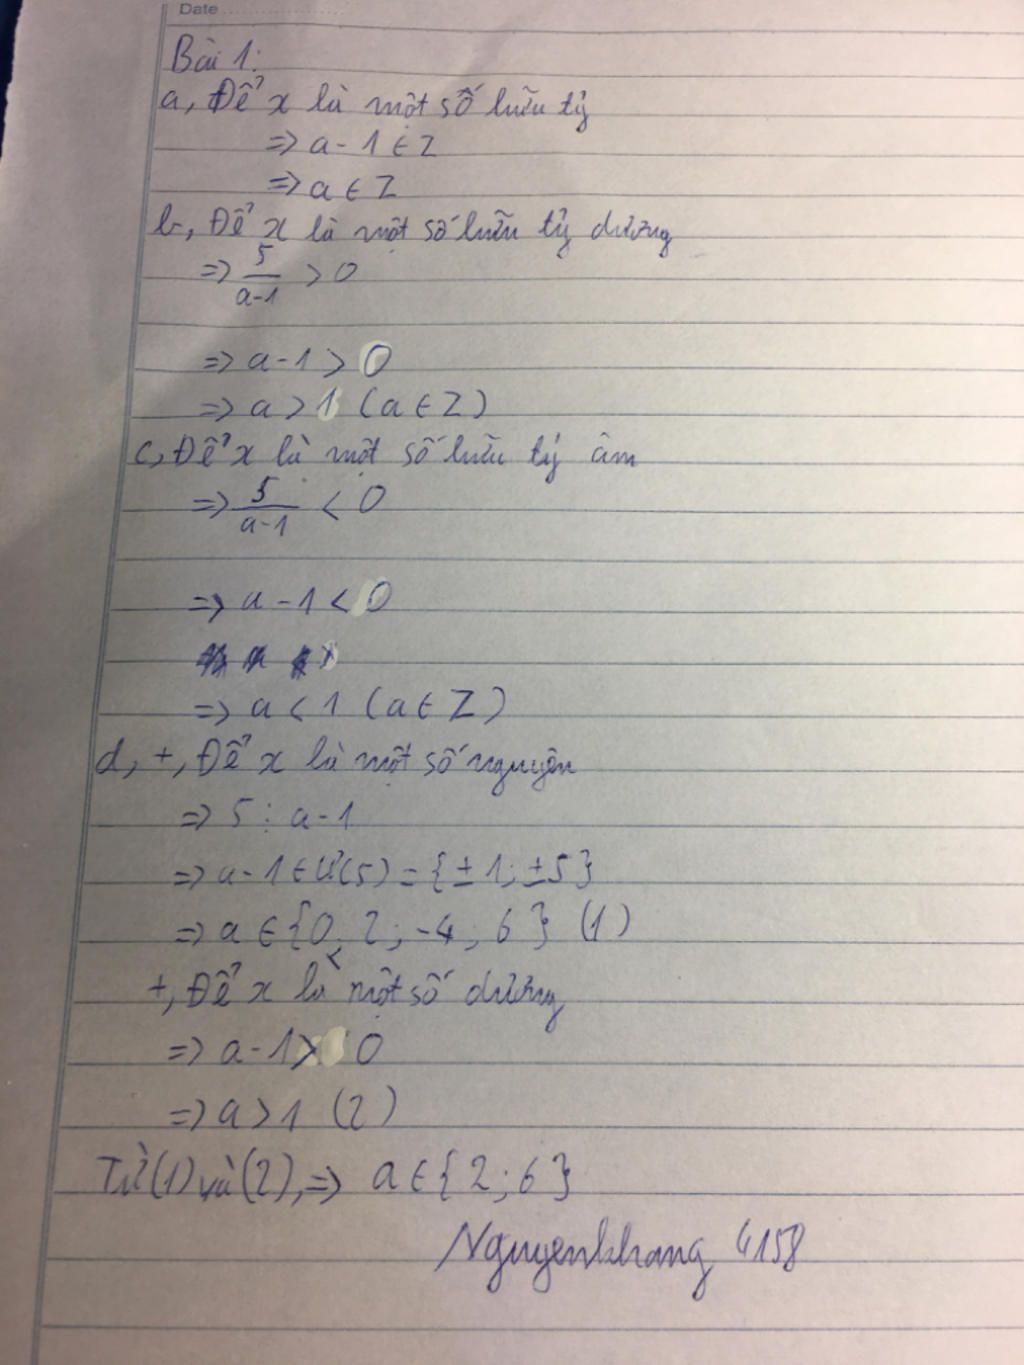 Date
Bài 1:
a, Để x là một số hữu tỷ
=> a - 1 ∈ Z
=> a ∈ Z
b, Để x là một số hữu tỷ dương
=> 5/(a-1) > 0
=> a - 1 > 0
=> a > 1 (a ∈ Z)
c, Để x là một số hữu tỷ âm
=> 5/(a-1) < 0
=> a - 1 < 0
=> a < 1 (a ∈ Z)
d, +, Để x là một số nguyên
=> 5 ⋮ a - 1
=> a - 1 ∈ Ư(5) = {±1; ±5}
=> a ∈ {0; 2; -4; 6} (1)
+, Để x là một số dương
=> a - 1 > 0
=> a > 1 (2)
Từ (1) và (2), => a ∈ {2; 6}
Nguyenkhang 4158